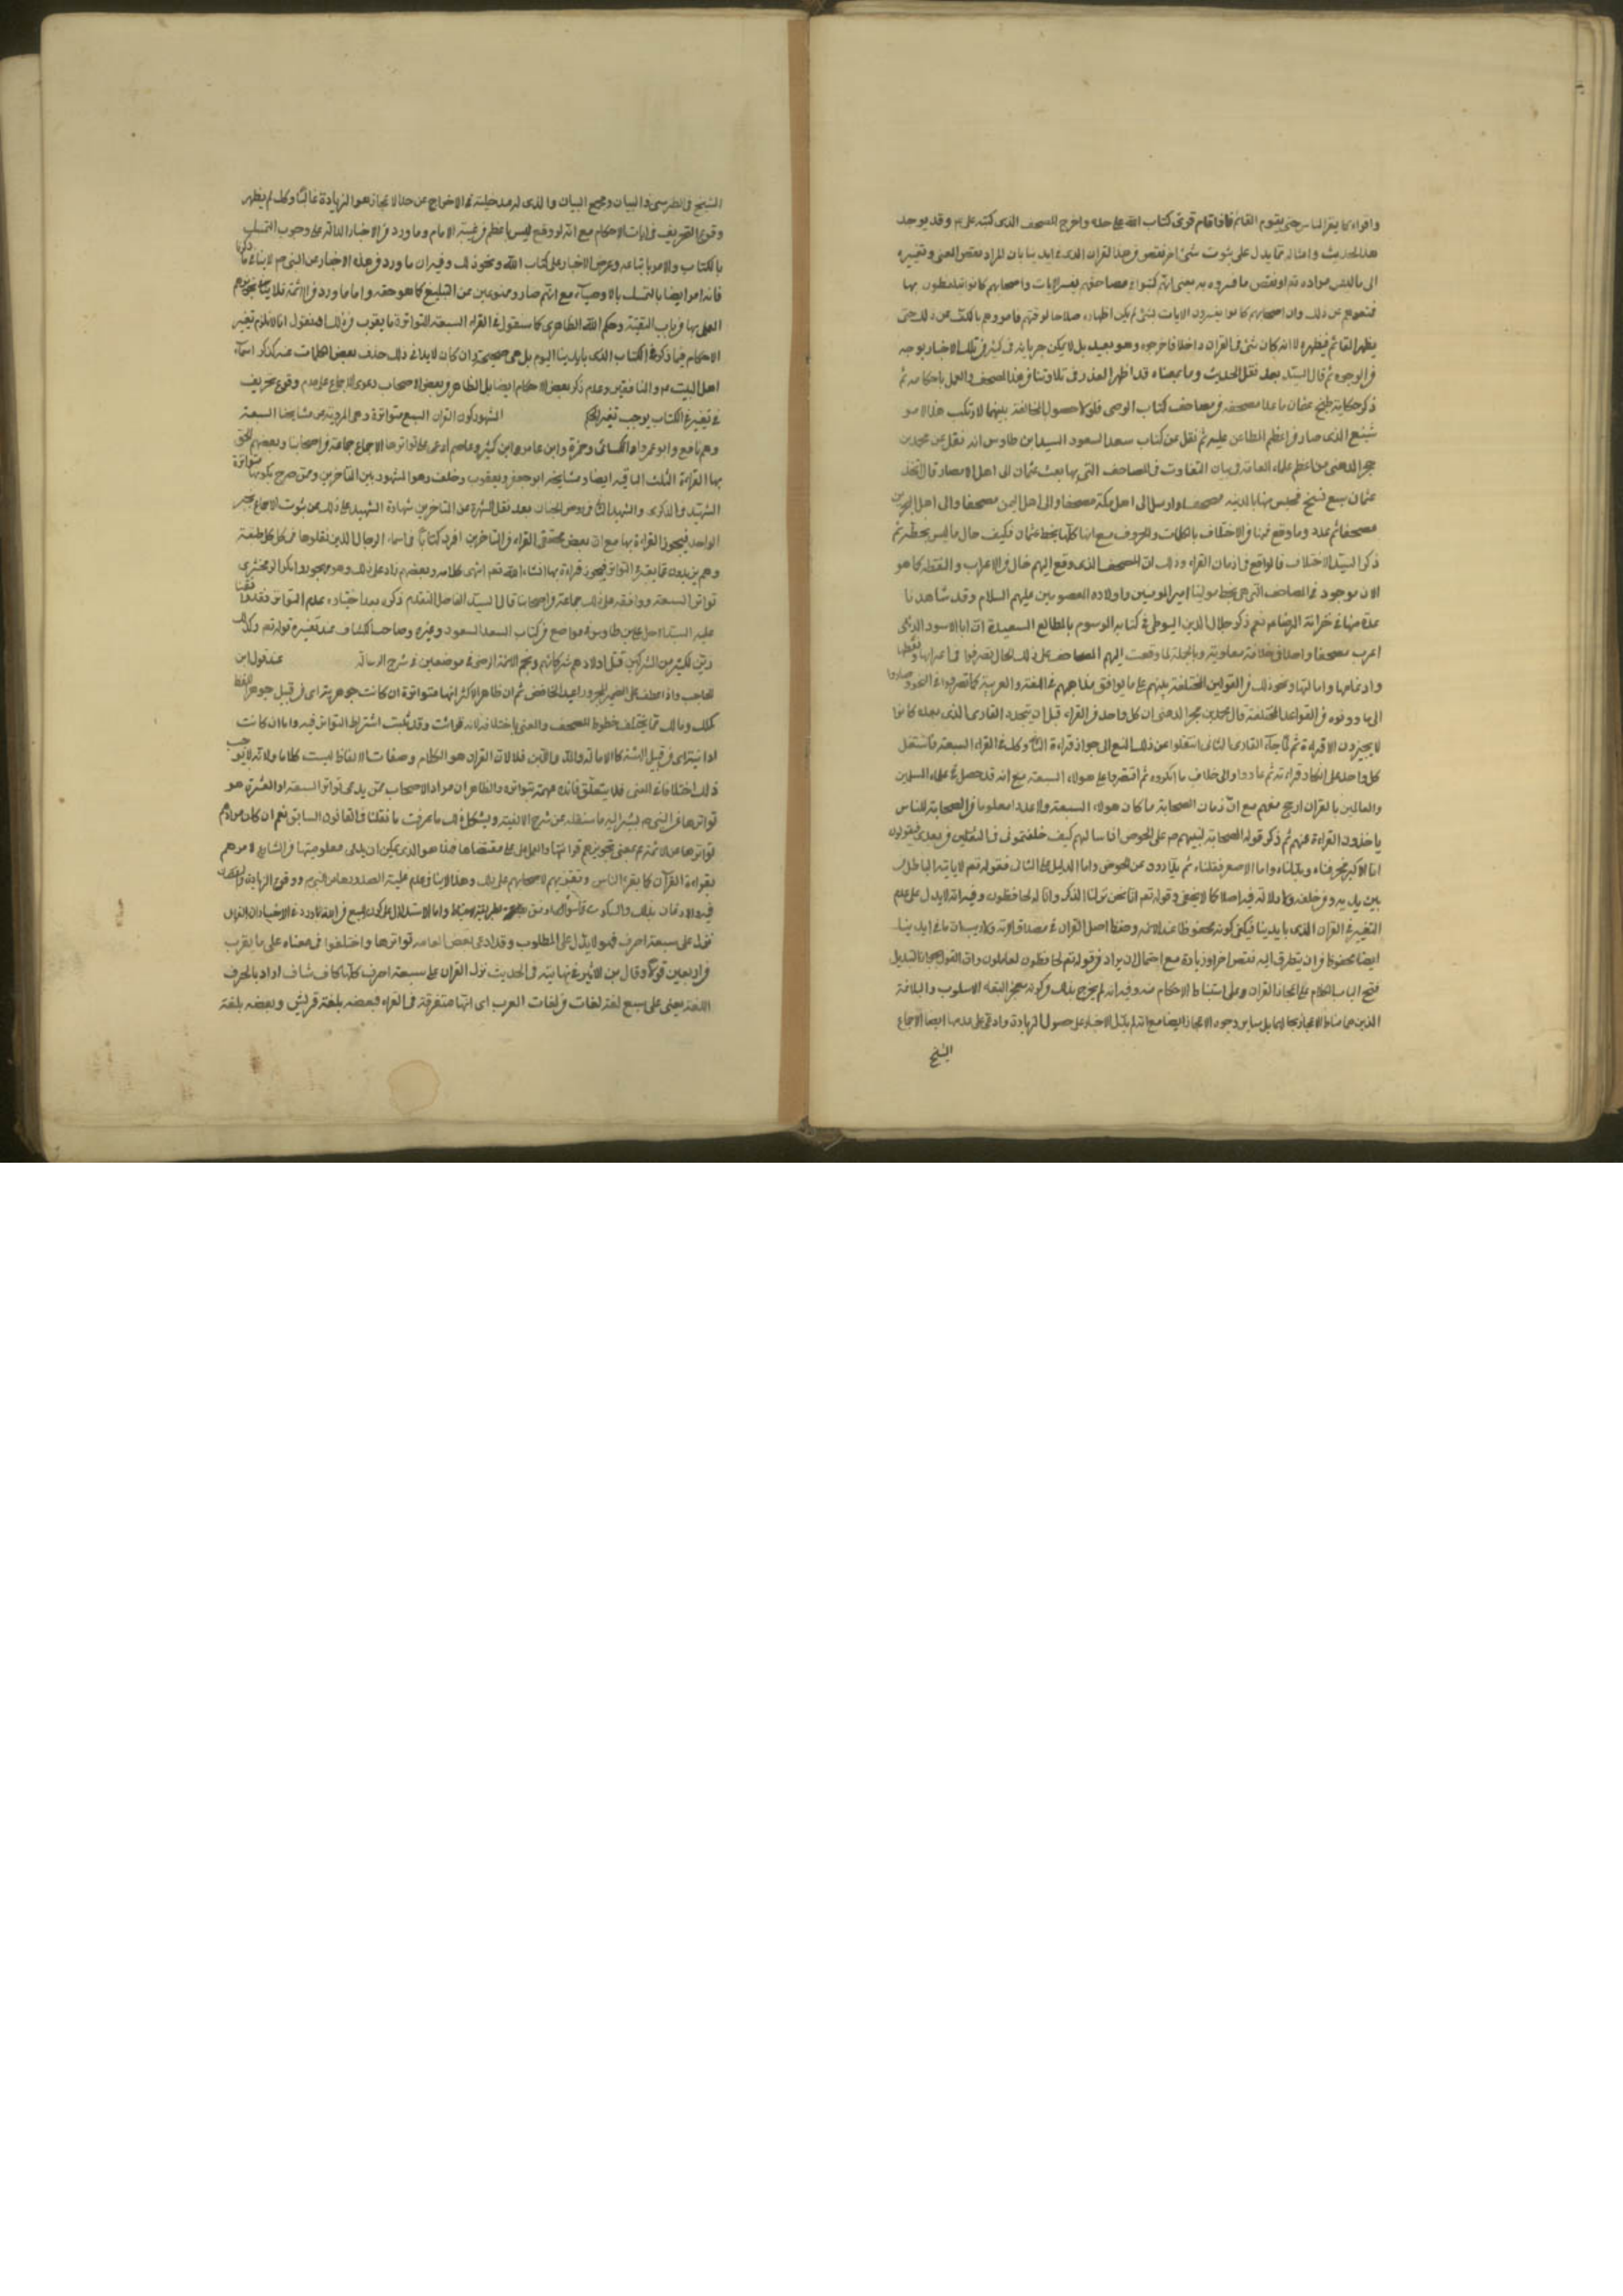 واقراء كما يقرا الناس حتى يقوم القائم فاذا قام قرى كتاب الله على حده واخرج المصحف الذى كتبه على ع وقد يوجه
هذا الحديث وامثاله مما يدل على ثبوت شئ اخر نقص فى هذا القران الذى فى ايدينا بان المراد نقص المعنى وتغييره
الى ما ليس مراده تم او نقص ما فسروه به بمعنى انهم كتبوا فى مصاحفهم تفسير الايات واصحابهم كانوا يتلفظون بها
فمنعوهم عن ذلك وان اصحابهم كانوا يفسرون الايات بشئ لم يكن اظهاره صلاحا لوقتهم فامروهم بالكف عن ذلك حتى
يظهر القائم فيظهره لا انه كان شئ فى القران داخلا فاخرجوه وهو بعيد بل لا يمكن جريانه فى كثير من تلك الاخبار بوجه
من الوجوه ثم قال السيد بعد نقل الحديث وما بمعناه قد اظهر العذر فى تلاوتنا فى هذا المصحف والعمل باحكامه ثم
ذكر حكاية طبخ عثمان ما عدا مصحفه من مصاحف كتاب الوحى فلولا حصول المخالفة بينهما لا ارتكب هذا الامر
شنيع الذى صار من اعظم المطاعن عليه ثم نقل عن كتاب سعد السعود السيد ابن طاوس انه نقل عن محمد بن
بحر الرهنى من اعظم علماء العامة فى بيان التفاوت فى المصاحف التى بها بعث عثمان الى اهل الامصار قال اتخذ
عثمان سبع نسخ فحبس منها بالمدينه مصحفا وارسل الى اهل مكة مصحفا والى اهل اليمن مصحفا والى اهل البحرين
مصحفا ثم عدد وما وقع فيها من الاختلاف بالكلمات والحروف مع انها كلها بخط عثمان فكيف حال ما ليس بخطه ثم
ذكر السيد الاختلاف فالواقع فى ازمان القراء وذلك ان المصحف الذى وقع اليهم خال من الاعراب والنقط كما هو
الان موجود فى المصاحف التى هى بخط مولينا امير المومنين واولاده المعصومين عليهم السلام وقد شاهدنا
عدة منها فى خزانة الرضا ع نعم ذكر جلال الدين السيوطى فى كتابه الموسوم بالمطالع السعيدة ان ابا الاسود الدئلى
اعرب مصحفا واحدا فى خلافة معاوية وبالجملة لما وقعت اليهم المصاحف على ذلك الحال تصرفوا فى اعرابها ونقطها
وادغامها وامالتها ونحو ذلك من القوانين المختلفة بينهم على ما يوافق مذاهبهم فى اللغة والعربية كما تصرفوا فى النحو وصاروا
الى ما دونوه من القواعد المختلفة قال محمد بن بحر الرهنى ان كل واحد من القراء قبل ان يتجدد القارى الذى بعده كانوا
لا يجيزون الا قراءته ثم لما جآء القارى الثانى انتقلوا عن ذلك المنع الى جواز قراءة الثانى وكذلك فى القراء السبعة فاشتمل
كل واحد على انكار قراءته ثم عادوا والى خلاف ما انكروه ثم اقتصروا على هولاء السبعة مع انه قد حصل فى علماء المسلمين
والعالمين بالقران ارجح منهم مع ان زمان الصحابة ما كان هولاء السبعة ولا عددا معلوما من الصحابة للناس
ياخذون القراءة عنهم ثم ذكر قول الصحابة لنبيهم ص على الحوض اذا سالهم كيف خلفتمونى فى الثقلين من بعدى فيقولون
اما الاكبر فحرفناه وبدلناه واما الاصغر فقتلناه ثم يذادون عن الحوض واما الدليل على الثانى فقوله تم لا ياتيه الباطل
بين يديه ومن خلفه ولا دلالة فيه اصلا كما لا يخفى وقوله تم انا نحن نزلنا الذكر وانا له لحافظون وفيه انه لا يدل على عدم
التغيير فى القران الذى بايدينا فيكفى كونه محفوظا عند الائمه وحفظ اصل القران فى مصداق الاية ولا ريب ان ما فى ايدينا
ايضا محفوظ من ان يتطرق اليه نقص اخر او زيادة مع احتمال ان يراد من قوله تم لحافظون لعالمون وان القول بجواز التبديل
فتح الباب الكلام على اعجاز القران وعلى استنباط الاحكام منه وفيه انه لم يخرج بذلك من كونه معجز البقاء الاسلوب والبلاغة
الذين هما مناط الاعجاز بحالهما بل ساير وجوه الاعجاز ايضا مع انه لم يدل الاخبار على حصول الزيادة وادعى على عدمها ايضا الاجماع
الشيخ
الشيخ والطبرسى فى البيان ومجمع البيان والذى له مدخلية فى الاخراج عن حد الاعجاز هو الزيادة غالبا وكذلك لم يظهر
وقوع التحريف فى ايات الاحكام مع انه لو وقع ليس باعظم من غيبة الامام وما ورد من الاخبار الدالة على وجوب التمسك
بالكتاب والامر باتباعه وعرض الاخبار على كتاب الله ونحو ذلك وفيه ان ما ورد من هذه الاخبار عن النبى ص لا ينافى ما ذكرنا
فانه امر ايضا بالتمسك بالاوصيآء مع انهم صاروا ممنوعين من التبليغ كما هو حقه واما ما ورد من الائمة فلا
العمل بها من باب التقية وحكم الله الظاهرى كما سنقول فى القراء السبعة المتواترة ما يقرب من ذلك فنقول انا لا نلزم تغير
الاحكام فيما ذكروه فى الكتاب الذى بايدينا اليوم بل هى صحيحة وان كان لا ينافى ذلك حذف بعض الكلمات عنه كذكر اسمآء
اهل البيت ع والمنافقين وعدم ذكر بعض الاحكام ايضا بل الظاهر من بعض الاصحاب دعوى الاجماع على عدم وقوع تحريف
فى تغيير فى الكتاب يوجب تغيير الحكم المشهور كون القران السبع متواترة وهى المروية عن مشايخنا السبعة
وهم نافع وابو عمرو والكسائى وحمزة وابن عامر وابن كثير وعاصم ادعى على تواترها الاجماع جماعة من اصحابنا وبعضهم الحق
بها القراءة الثلث الباقيه ايضا ومشايخها ابو جعفر ويعقوب وخلف وهو المشهور بين المتاخرين وممن صرح بكونها متواترة
الشهيد فى الذكرى والشهيد الثانى فى روض الجنان بعد نقل الشهرة من المتاخرين شهادة الشهيد على ذلك عن ثبوت الاجماع بخبر
الواحد فيجوز القراءة بها مع ان بعض محققى القراء من المتاخرين افرد كتابا فى اسماء الرجال الذين نقلوها فى كل طبقة
وهم يزيدون عما يعتبر فى التواتر فيجوز قراءة بها انشاء الله تعم انتهى كلامه وبعضهم زاد على ذلك وهو مهجور وانكر الزمخشرى
تواتر السبعة ووافقه على ذلك جماعة من اصحابنا قال السيد الفاضل المتقدم ذكره بعد اختياره عدم التواتر وقد وافقنا
عليه السيد الاجل على بن طاوس فى مواضع من كتاب السعد السعود وغيره وصاحب الكشاف عند تفسيره قوله تم وكذلك
زين لكثير من المشركين قتل اولادهم شركائهم ونجم الائمة الرضى فى موضعين فى شرح الرسالة عند قول ابن
الحاجب واذا عطف على الضمير المجرور اعيد الخافض ثم ان ظاهر الاكثر انها متواترة ان كانت جوهرية اى من قبيل جوهر اللفظ
كملك ومالك مما يختلف خطوط المصحف والمعنى باختلافه لانه قرائت وقد ثبت اشتراط التواتر فيه واما ان كانت
ادائية اى من قبيل الهيئة كالامالة والمد واللين فلا لان القران هو الكلام وصفات الالفاظ ليست كلاما ولانه لا يوجب
ذلك اختلافا فى المعنى فلا يتعلق فائده مهمة بتواتره والظاهر ان مراد الاصحاب ممن يدعى تواتر السبعة او العشرة هو
تواترها من النبى ص يشير اليه ما سننقله عن شرح الالفية ويشكل ذلك ما عرفت ما نقلنا فى القانون السابق نعم ان كان مرادهم
تواترها عن الائمة ع بمعنى تجويزهم قرائتها والعمل على مقتضاها فهذا هو الذى يمكن ان يدعى معلوميتها من الشارع لامرهم
بقراءة القرآن كما يقرء الناس وتقريرهم لاصحابهم على ذلك وهذا لا ينافى عدم علمية الصدور من النبى ص ووقوع الزيادة والنقصان
فيه والاذعان بذلك والسكوت واما الاستدلال على كون السبع من الله بما ورد فى الاخبار ان القران
نزل على سبعة احرف فهو لا يدل على المطلوب وقد ادعى بعض العامه تواترها واختلفوا فى معناه على ما يقرب
من اربعين قولا وقال ابن الاثير فى نهايته فى الحديث نزل القران على سبعة احرف كلها كاف شاف اراد بالحرف
اللغة يعنى على سبع لغة لغات من لغات العرب اى انها متفرقة فى القراء فبعضه بلغة قريش وبعضه بلغة